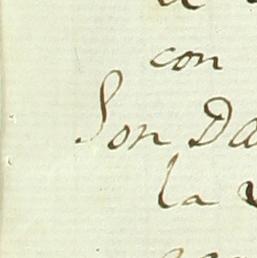 con
Son Da
la